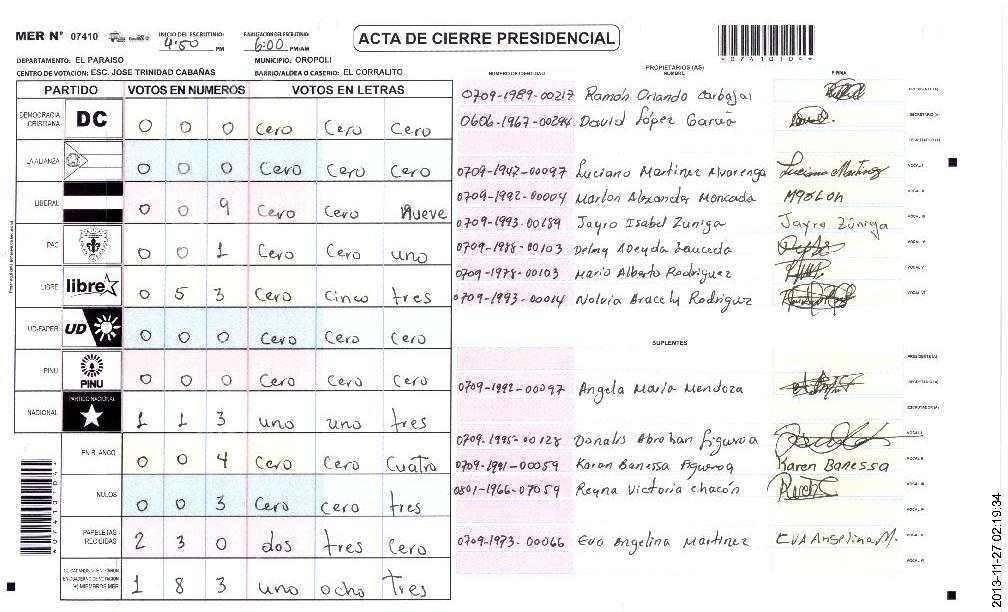 MER N° 07410 INICIO DEL ESCRUTINIO: 4:50 PM FINALIZACION DEL ESCRUTINIO: 6:00 PM/AM ACTA DE CIERRE PRESIDENCIAL *07410104*
DEPARTAMENTO: EL PARAISO MUNICIPIO: OROPOLI
CENTRO DE VOTACION: ESC. JOSE TRINIDAD CABAÑAS BARRIO/ALDEA O CASERIO: EL CORRALITO
PARTIDO VOTOS EN NUMEROS VOTOS EN LETRAS
DEMOCRACIA CRISTIANA DC 0 0 0 Cero Cero Cero
LA ALIANZA 0 0 0 Cero Cero Cero
LIBERAL 0 0 9 Cero Cero Nueve
PAC 0 0 1 Cero Cero uno
LIBRE libre 0 5 3 Cero Cinco tres
UD-FAPER UD 0 0 0 Cero Cero Cero
PINU PINU 0 0 0 Cero Cero Cero
NACIONAL PARTIDO NACIONAL 1 1 3 uno uno tres
EN BLANCO 0 0 4 Cero Cero Cuatro
NULOS 0 0 3 Cero Cero tres
PAPELETAS RECIBIDAS 2 3 0 dos tres Cero
CIUDADANOS QUE VOTARON EN CUADERNO DE VOTACION (+) MIEMBROS MER 1 8 3 uno ocho Tres
*07410104*
PROPIETARIOS (AS)
NUMERO DE IDENTIDAD NOMBRE FIRMA
0709-1989-00217 Ramón Orlando Carbajal PRESIDENTE (A)
0606-1967-00294 David López García SECRETARIO (A)
ESCRUTADOR (A)
0709-1947-00097 Luciano Martinez Alvarenga Luciano Martinez VOCAL I
0709-1992-00004 Marlon Alexander Moncada Marlon VOCAL II
0709-1993-00189 Jayro Isabel Zuniga Jayro Zúniga VOCAL III
0709-1988-00103 Delmy Adeyda Sauceda VOCAL IV
0709-1978-00103 Mario Alberto Rodriguez VOCAL V
0709-1993-00014 Nolvia Aracely Rodriguez VOCAL VI
SUPLENTES
PRESIDENTE (A)
0709-1992-00097 Angela Maria Mendoza SECRETARIO (A)
ESCRUTADOR (A)
0709-1995-00128 Donalis Abrahan figueroa VOCAL I
0709-1991-00059 Karen Banessa Figueroa Karen Banessa VOCAL II
0801-1966-07059 Reyna Victoria chacón VOCAL III
VOCAL IV
0709-1973-00066 Eva Angelina Martinez EVA Angelina M. VOCAL V
VOCAL VI
2013-11-27 02:19:34